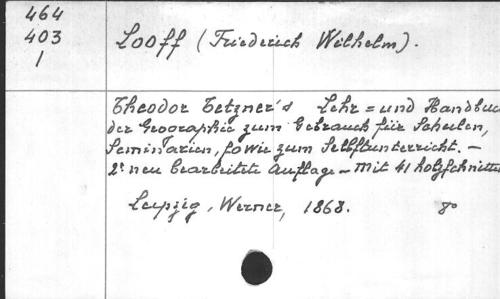 464
403
1
Looff (Friederich Wilhelm).
Theodor Tetzner's Lehr= und Handbuc
der Geographie zum Gebrauch für Schulen,
Seminarien, sowie zum Selbstunterricht. —
2e neu bearbeitete Auflage — Mit 41 holzschnitten
Leipzig, Werner, 1868. 8o